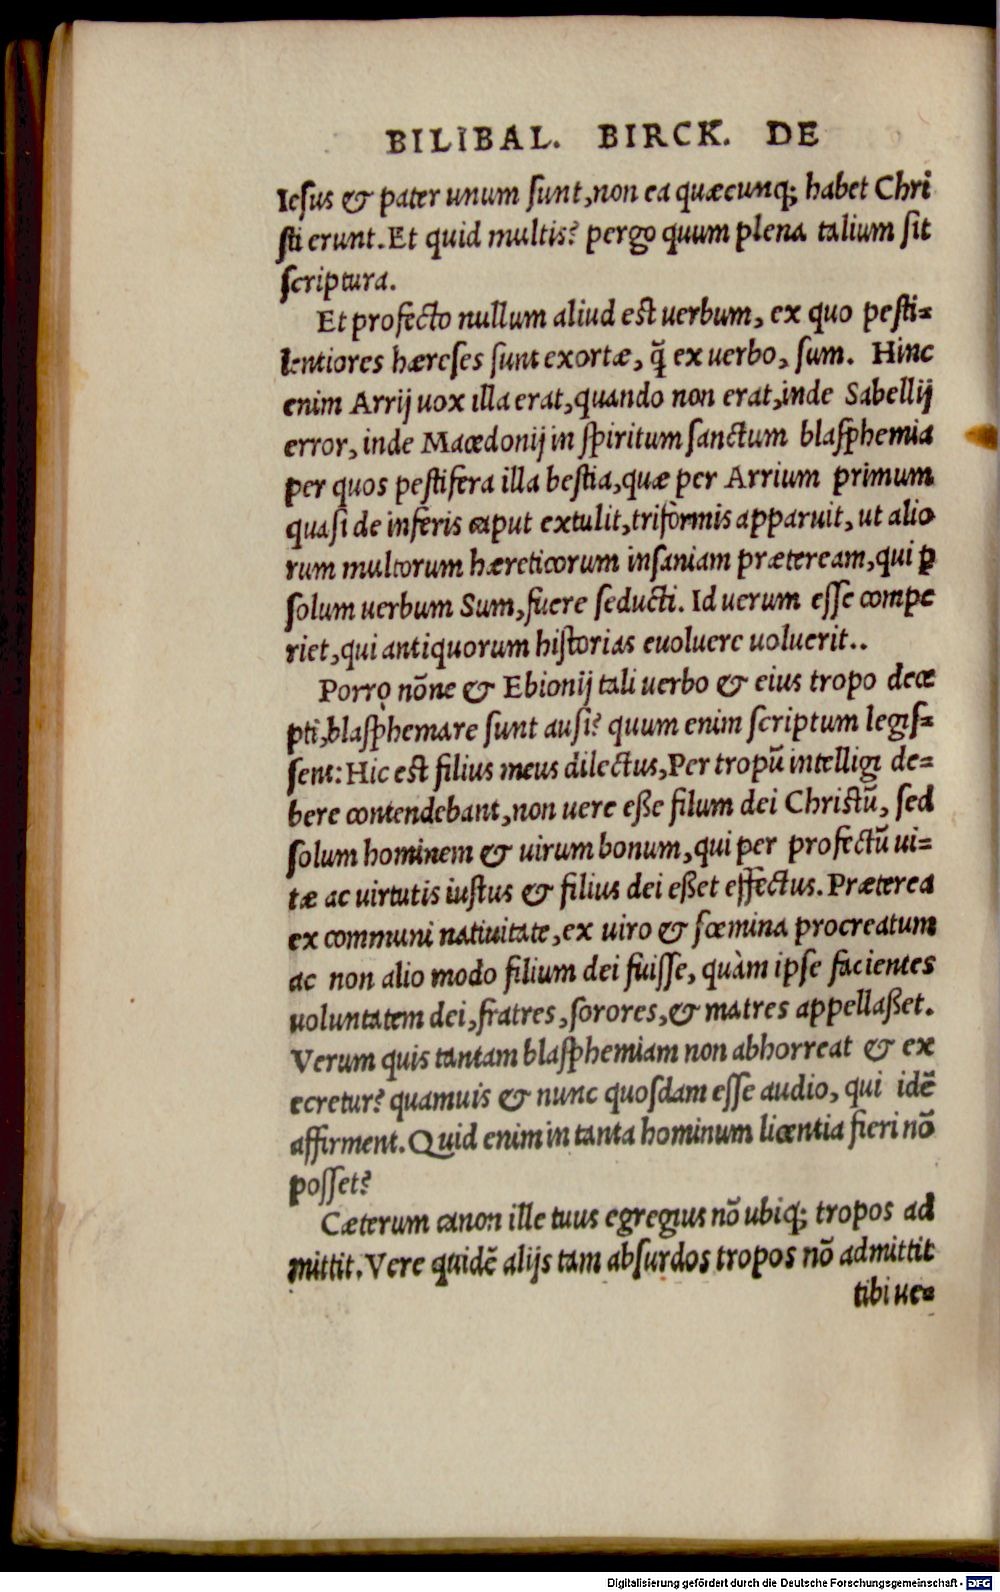 BILIBAL. BIRCK. DE
Iesus & pater unum sunt, non ea quæcunq; habet Chri
sti erunt. Et quid multis? pergo quum plena talium sit
scriptura.
Et profecto nullum aliud est uerbum, ex quo pesti=
lentiores hæreses sunt exortæ, q̃ ex uerbo, sum. Hinc
enim Arrij uox illa erat, quando non erat, inde Sabellij
error, inde Macedonij in spiritum sanctum blasphemia
per quos pestifera illa bestia, quæ per Arrium primum
quasi de inferis caput extulit, triformis apparuit, ut alio
rum multorum hæreticorum insaniam præteream, qui ꝑ
solum uerbum Sum, fuere seducti. Id uerum esse compe
riet, qui antiquorum historias euoluere uoluerit..
Porro nõne & Ebionij tali uerbo & eius tropo dece
pti, blasphemare sunt ausi? quum enim scriptum legis=
sent: Hic est filius meus dilectus, Per tropũ intelligi de=
bere contendebant, non uere eße filum dei Christũ, sed
solum hominem & uirum bonum, qui per profectũ ui=
tæ ac uirtutis iustus & filius dei eßet effectus. Præterea
ex communi natiuitate, ex uiro & fœmina procreatum
ac non alio modo filium dei fuisse, quàm ipse facientes
uoluntatem dei, fratres, sorores, & matres appellaßet.
Verum quis tantam blasphemiam non abhorreat & ex
ecretur? quamuis & nunc quosdam esse audio, qui idẽ
affirment. Quid enim in tanta hominum licentia fieri nõ
posset?
Cæterum canon ille tuus egregius nõ ubiq; tropos ad
mittit. Vere quidẽ alijs tam absurdos tropos nõ admittit
tibi ue=
Digitalisierung gefördert durch die Deutsche Forschungsgemeinschaft - DFG